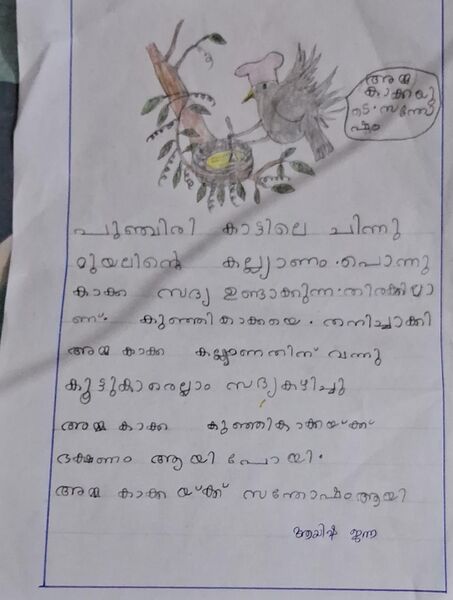 അമ്മ
കാക്കയു
ടെ. സന്തോ
ഷം
പുഞ്ചിരി കാട്ടിലെ ചിന്നു
മുയലിന്റെ കല്ല്യാണം. പൊന്നു
കാക്ക സദ്യ ഉണ്ടാക്കുന്ന. തിരക്കിലാ
ണ്. കുഞ്ഞികാക്കയെ. തനിച്ചാക്കി
അമ്മ കാക്ക കല്ല്യാണതിന് വന്നു
കൂട്ടുകാരെല്ലാം സദ്യകഴിച്ചു
അമ്മ കാക്ക കുഞ്ഞികാക്കയ്ക്ക്
ഭക്ഷണം ആയി പോയി.
അമ്മ കാക്ക യ്ക്ക് സന്തോഷംആയി
ആയിഷ ജന്ന